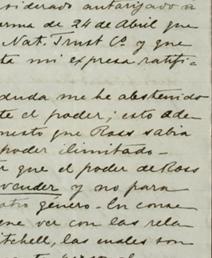 siderado autorizado a
orma de 24 de Abril que
Nat. Trust Co. y que
ta mi expresa ratifi
duda me he abstenido
te el poder; esto ade
nesto que Ross sabia
poder ilimitado
r que el poder de Ross
vender y no para
otro género. En conse
ene ver con las rela
itchell, las cuales son